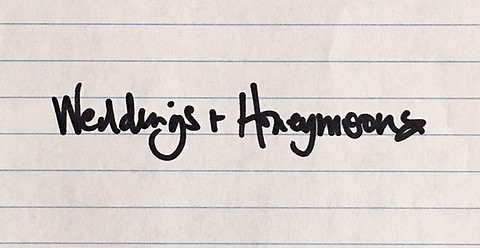 Weddings + Honeymoons